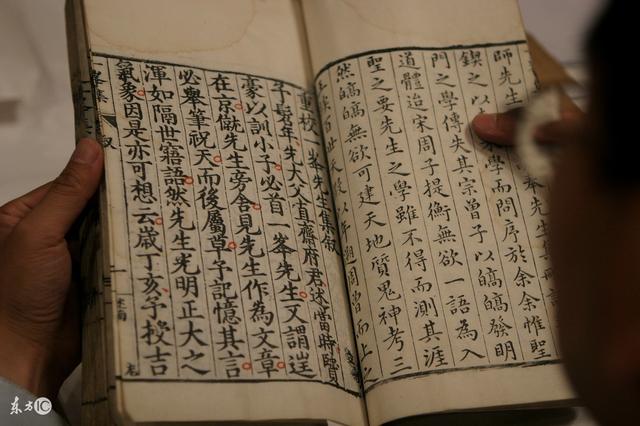 師先生奉先生
鍥之以家學而問序於余余惟聖
門之學傳失其宗曾子以皜皜發明
道體迨宋周子提衡無欲一語為入
聖之要先生之學雖不得而測其涯
然皜皜無欲可建天地質鬼神考三
重校峯先生集叙
予髫年先大父直齋府君述當時賢
豪以訓小子必首一峯先生又謂逰
在京僦先生旁舍見先生作為文章
必舉筆祝天而後屬草予記憶其言
渾如隔世寤語然先生光明正大之
氣象因是亦可想云歲丁亥予授吉
东方IC